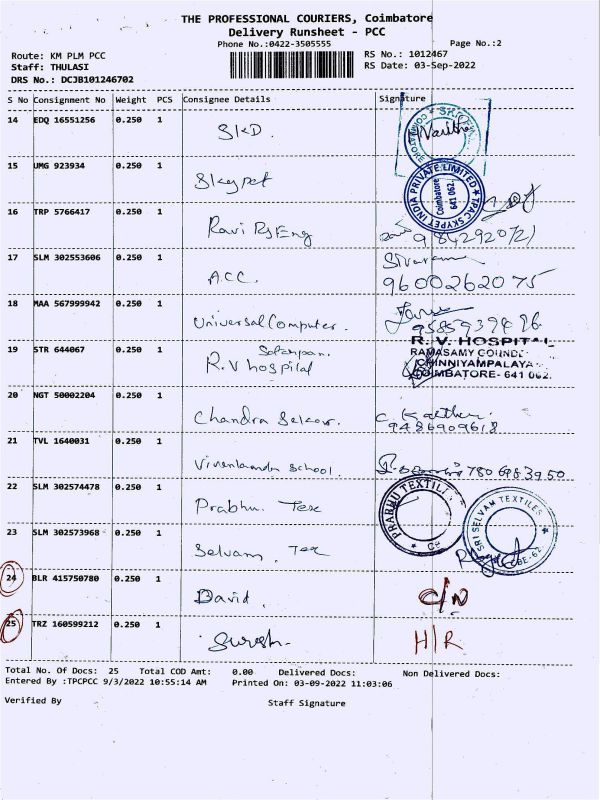 THE PROFESSIONAL COURIERS, Coimbatore
Delivery Runsheet - PCC
Phone No.:0422-3505555
Page No.:2
Route: KM PLM PCC
RS No.: 1012467
Staff: THULASI
RS Date: 03-Sep-2022
DRS No.: DCJB101246702
S No Consignment No Weight PCS Consignee Details Signature
14 EDQ 16551256 0.250 1 SKD.
15 UMG 923934 0.250 1 Skypet
TPAC SKYPET INDIA PRIVATE LIMITED
Coimbatore
641 062.
16 TRP 5766417 0.250 1 Ravi Rj Eng
17 SLM 302553606 0.250 1 A.C.C. Sivaram
9600262075
18 MAA 567999942 0.250 1 Universal Computer.
9585939426
19 STR 644067 0.250 1 R.V hospital
R. V. HOSPITAL
RAMASAMY COUNDE
CHINNIYAMPALAYA
COIMBATORE- 641 062.
20 NGT 50002204 0.250 1 Chandra
9486909618
21 TVL 1640031 0.250 1 School. 7806983950
22 SLM 302574478 0.250 1 Prabhu. Tex
PRABHU TEXTIL
23 SLM 302573968 0.250 1 Selvam. Tex
SRI SELVAM TEXTILES
CBE-62
24 BLR 415750780 0.250 1 David. C/N
25 TRZ 160599212 0.250 1 Suresh. H/R
Total No. Of Docs: 25 Total COD Amt: 0.00 Delivered Docs: Non Delivered Docs:
Entered By :TPCPCC 9/3/2022 10:55:14 AM Printed On: 03-09-2022 11:03:06
Verified By Staff Signature